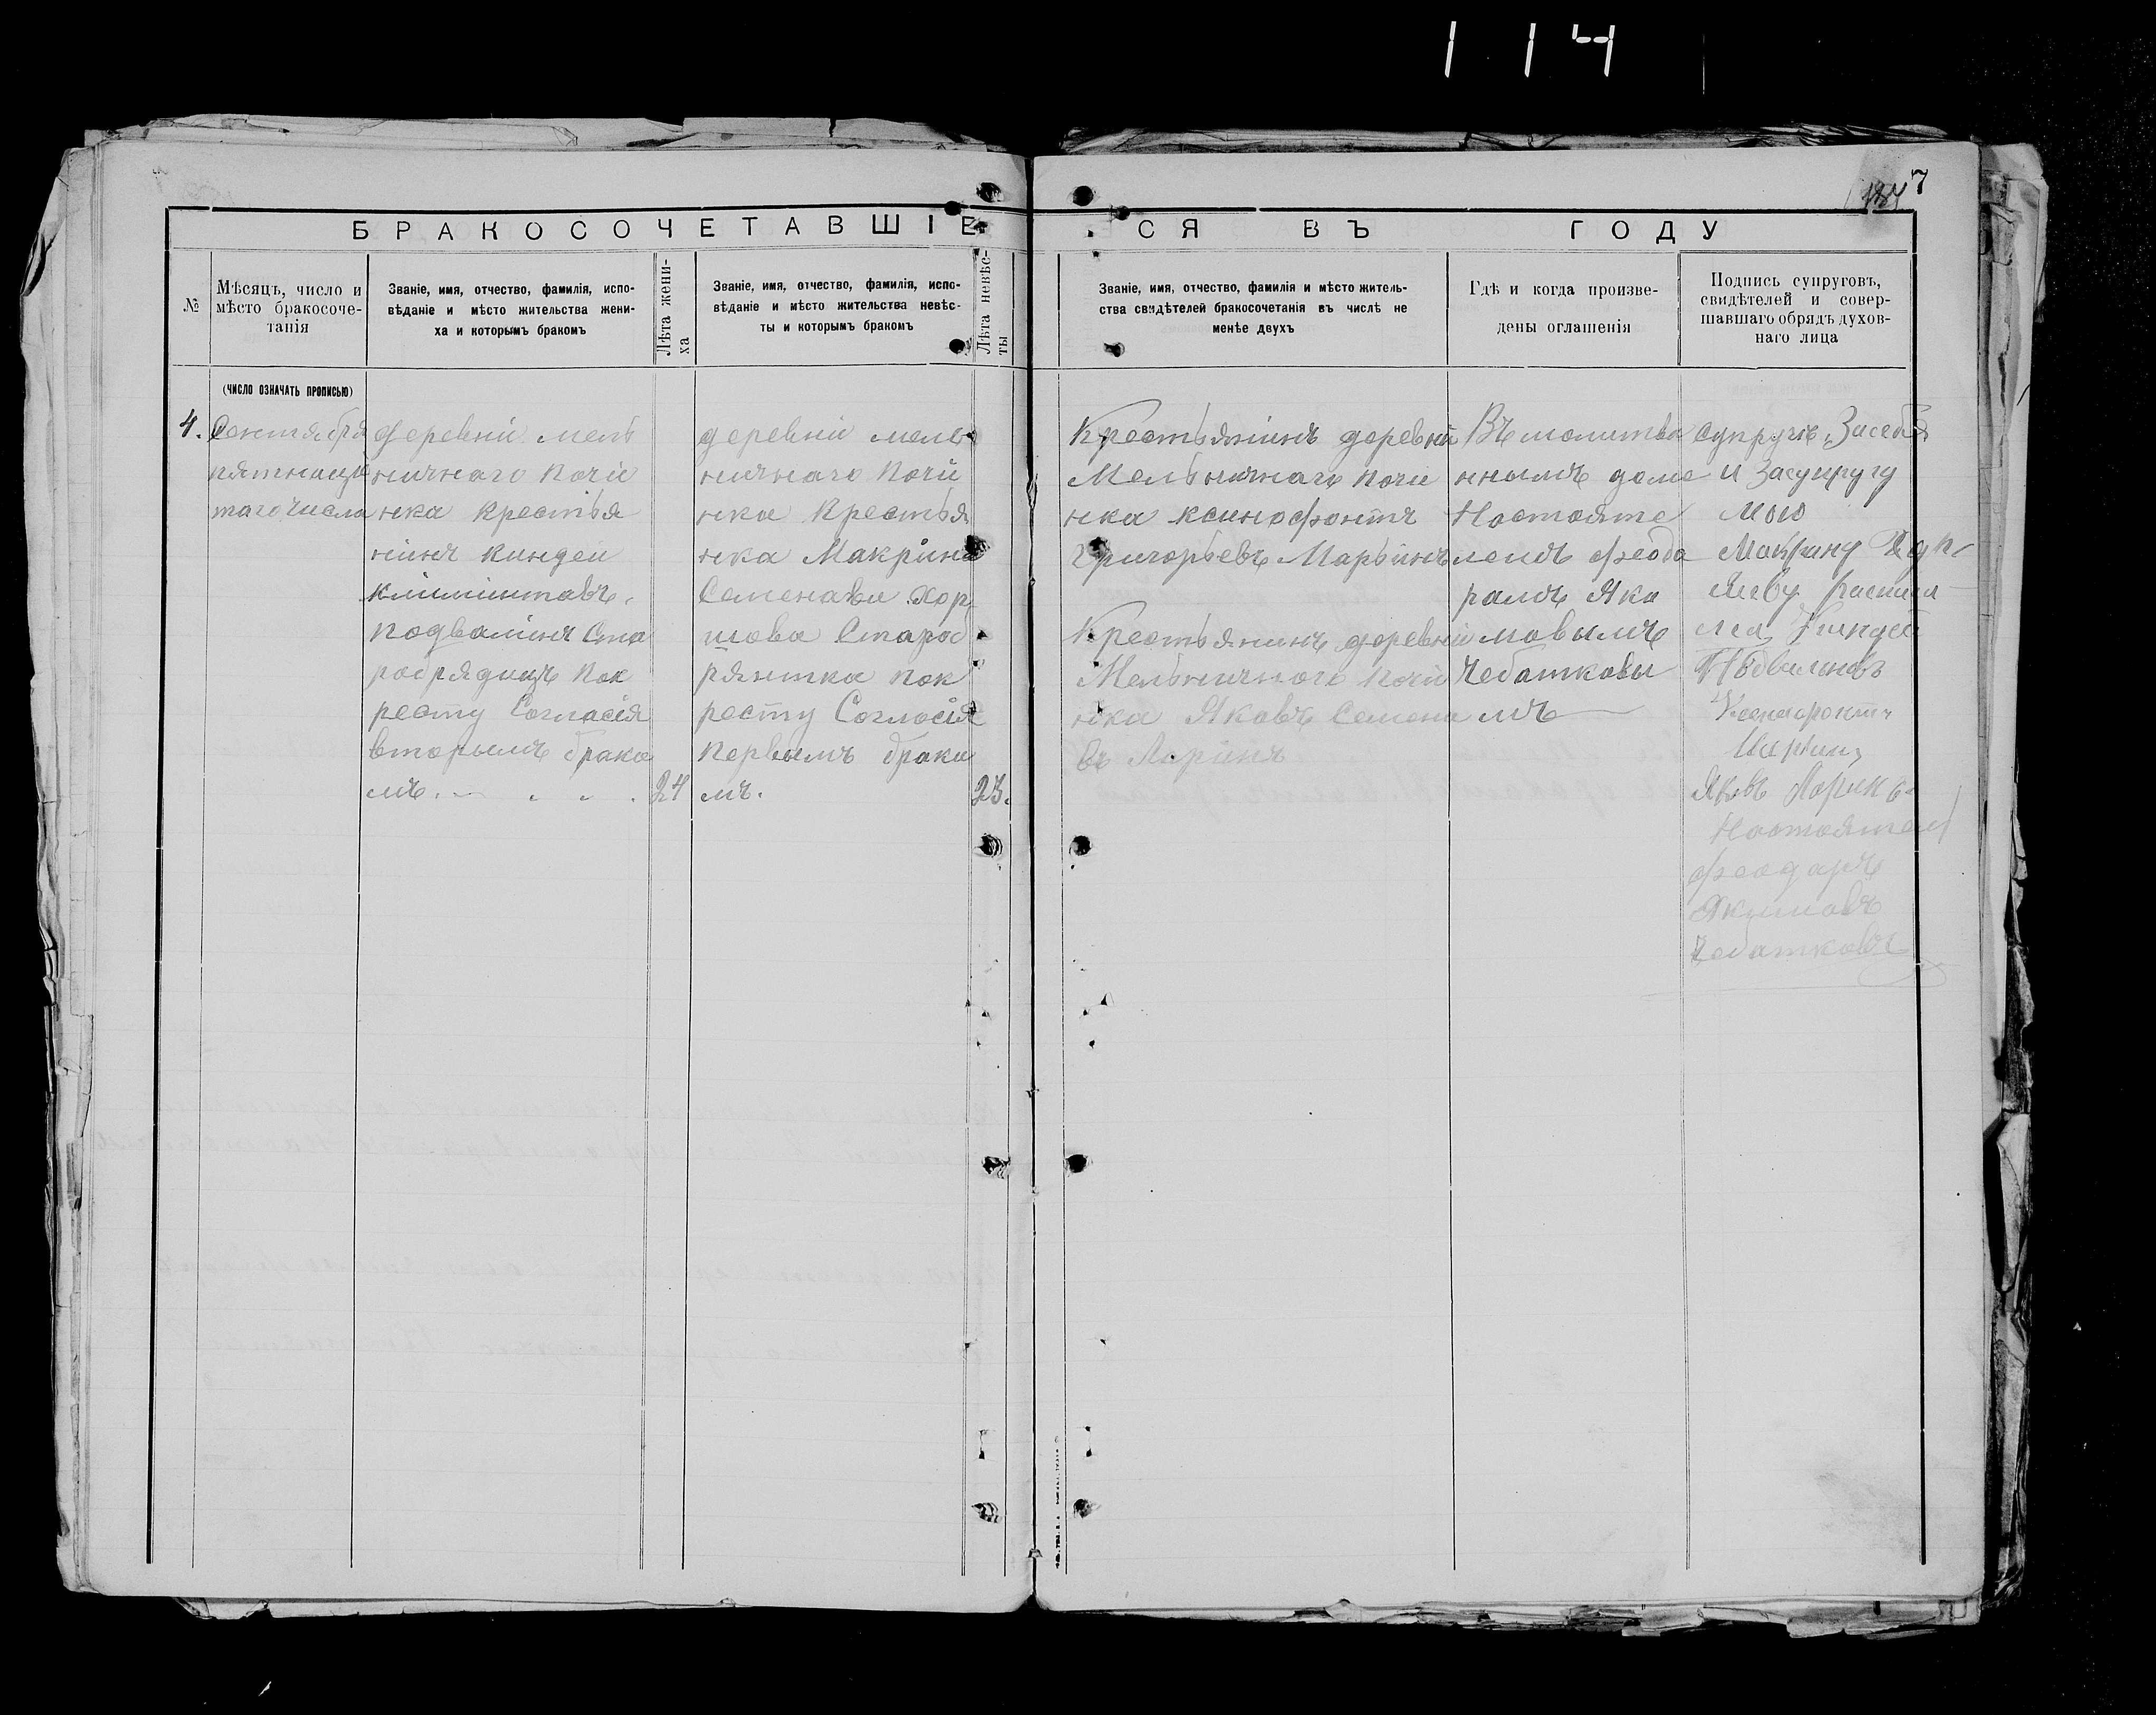 1 14
7
БРАКОСОЧЕТАВШІЕСЯ ВЪ ГОДУ
№
Мѣсяцъ, число и
мѣсто бракосоче-
танія
Званіе, имя, отчество, фамилія, испо-
вѣданіе и мѣсто жительства жени-
ха и которымъ бракомъ
Лѣта жени-
ха
Званіе, имя, отчество, фамилія, испо-
вѣданіе и мѣсто жительства невѣс-
ты и которымъ бракомъ
Лѣта невѣс-
ты
Званіе, имя, отчество, фамилія и мѣсто житель-
ства свидѣтелей бракосочетанія въ числѣ не
менѣе двухъ
Гдѣ и когда произве-
дены оглашенія
Подпись супруговъ,
свидѣтелей и совер-
шавшаго обрядъ духов-
наго лица
(ЧИСЛО ОЗНАЧАТЬ ПРОПИСЬЮ)
4.
Сентября
пятнаца
таго числа
деревни мель
ничнаго почи
нка крестья
нинъ киндеи
климинтовъ.
подвалинъ Ста
робрядицъ пок
ресту Согласія
вторымъ брако
мъ.
24
деревни мель
ничнаго почи
нка крестья
нка Макрина
Семенава хор
шова Староб
рянтка пок
ресту Согласія
первымъ брако
мъ.
23.
Крестьянинъ деревни
Мельничнаго почи
нка ксинофонтъ
Григорьевъ Марьинъ
Крестьянинъ деревни
Мельничного почи
нка Яковъ Семено
въ Ларинъ
Въ молитве
нномъ доме
Настояте
лемъ феодо
ромъ Яки
мовымъ
Чебатковы
мъ
Супруги, За себя
и За супругу
мою
Макрину
Киндеи
Подвалинъ
Ксенофонтъ
Марьинъ
Яковъ Ларинъ
Настоятель
феодаръ
Якимовъ
Чебатковъ